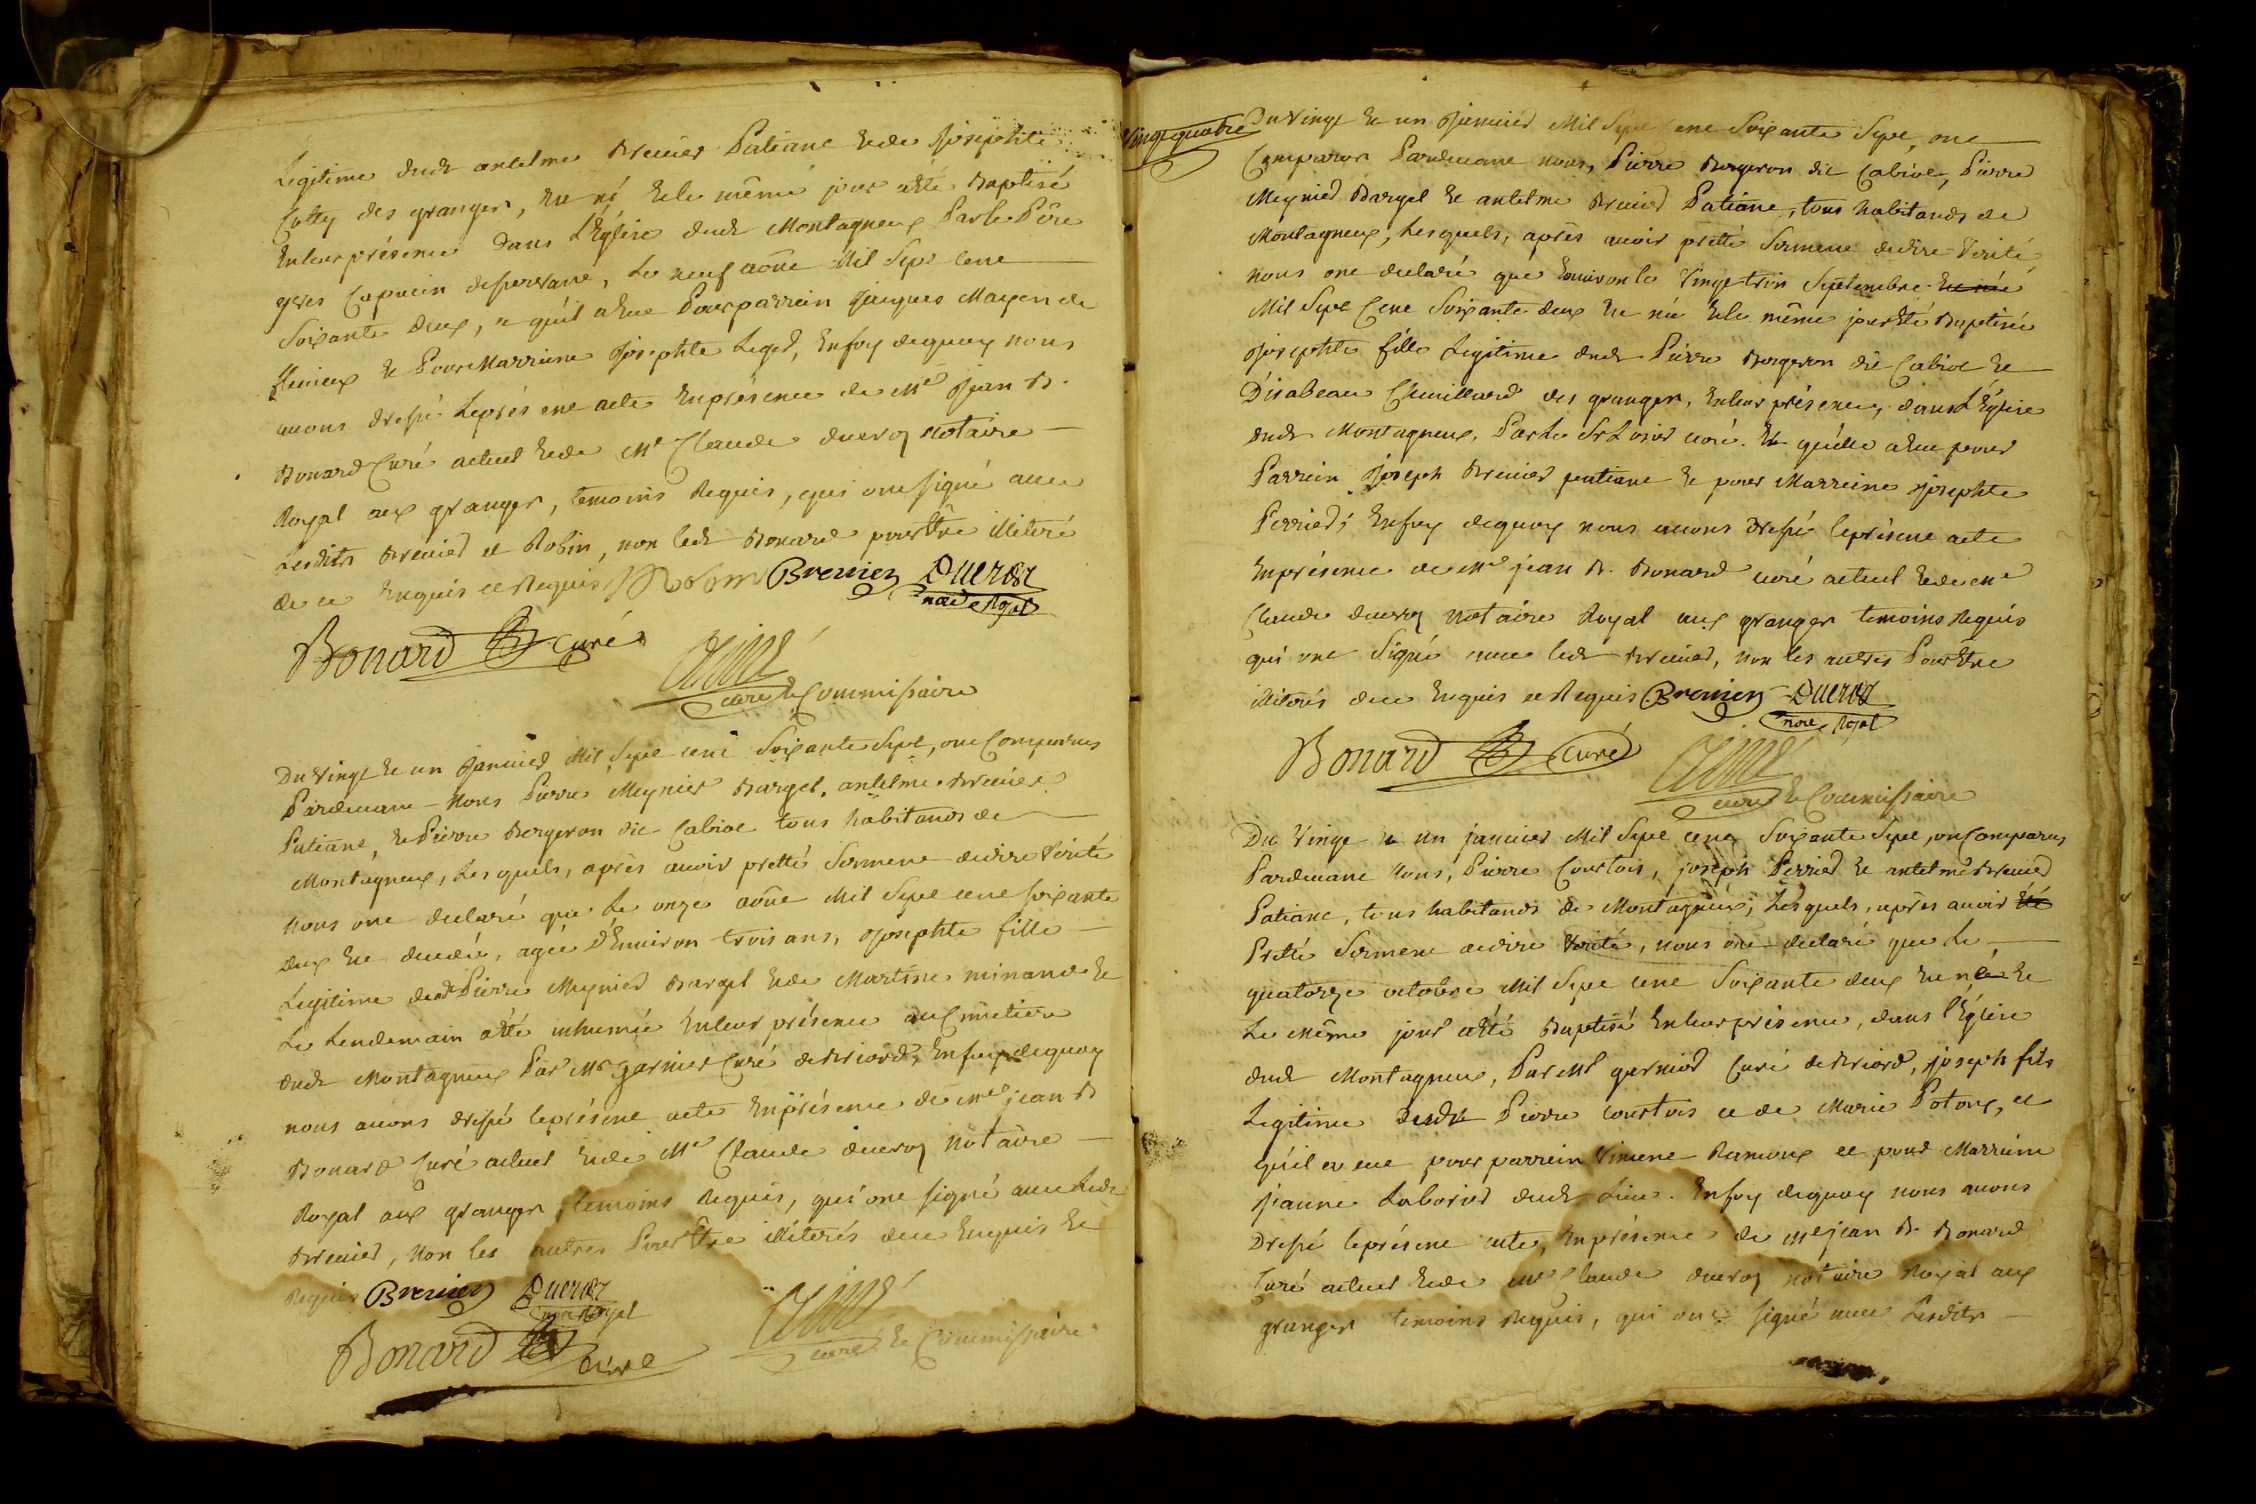 Legitime dudt antelme Brenier Patiane Et de Josephte
Cotty des granges, Est né Et le même jour a Eté Baptisé
En leur présence dans L'Eglise dudt Montagneux Par le Pére
yves Capucin desservant, Le neuf août Mil Sept Cent
Soixante deux, et qu'il a Eue Pour parrain Jacques Mayen de
Et Pour Marraine Josephte Leger, En foy de quoy nous
avons dressé Le présent acte En présence de Me Jean B.
Bonard Curé actuel Et de Me Claude Dueroz notaire
Royal aux granges, temoins Requis, qui ont signé avec
Lesdits Brenier et Robin, non ledt Bonard pour Être illiteré
de ce Enquis et Requis Robin Brenier Dueroz
nore Royal
Bonard Curé
curé Et Commissaire
Du Vingt Et un Janvier Mil Sept cent Soixante Sept, ont Comparus
Pardevant Nous Pierre Meynier Barget, antelme Brenier
Patiane, Et Pierre Bergeron dit Cabiot tous habitants de
Montagneux, Lesquels, après avoir pretté Serment de dire Verité
Nous ont declaré que Le onze août Mil Sept cent soixante
deux Est decedée, agée D'Environ trois ans, Josephte fille
Legitime dudt Pierre Meynier Barget Et de Martine minand Et
Le Lendemain a Eté inhumée En leur présence au Cimetiere
dudt Montagneux Par Mr Garnier Curé de Briord, En foy de quoy
nous avons dressé le présent acte En présence de me jean B
Bonard Curé actuel Et de Me Claude dueroz Notaire
Royal aux granges temoins Requis, qui ont signé avec Ledt
Brenier, Non les autres Pour Être illiterés de ce Enquis Et
Requis Brenier Dueroz
nore Royal
Bonard Curé
curé Et Commissaire
Vingt quatre
Du Vingt Et un Janvier Mil Sept Cent Soixante Sept, ont
Comparus Pardevant nous, Pierre Bergeron dit Cabiot, Pierre
Meynier Barget Et antelme Brenier Patiane, tous habitants de
Montagneux, Lesquels, après avoir pretté Serment de dire Verité,
nous ont declaré que Environ le Vingt trois Septembre Est née
Mil Sept Cent Soixante deux Est née Et le même jour Eté Baptisée
Josephte fille Legitime dudt Pierre Bergeron dit Cabiot Et
D'isabeau Chevillard des granges, En leur présence, dans L'Eglise
dudt Montagneux, Par Le Sr Curé. Et qu'elle a Eue pour
Parrein Joseph Brenier patiane Et pour Marreine Josephte
Perrier; En foy de quoy nous avons dressé le présent acte
En présence de me jean B. Bonard curé actuel Et de me
Claude dueroz Notaire Royal aux granges temoins Requis
qui ont Signé avec ledt Brenier, Non les autres Pour Être
illiterés de ce Enquis et Requis Brenier Dueroz
nore Royal
Bonard Curé
curé Et Commissaire
Du Vingt et un janvier Mil Sept cent Soixante Sept, ont Comparus
Pardevant Nous, Pierre Courtois, joseph Perrier Et antelme Brenier
Patiane, tous habitants de Montagneux, Lesquels, après avoir Eté
Pretté Serment de dire Verité, nous ont declaré que Le
quatorze octobre Mil Sept cent Soixante deux Est né Et
Le Même jour a Eté Baptisé En leur présence, dans l'Eglise
dudt Montagneux, Par Mr garnier Curé de Briord, joseph fils
Legitime Dudt Pierre courtois et de Marie Potoux, et
qu'il a eue pour parrein Vincent Ramoux et pour Marreine
jeanne Laborier dudt Lieu. En foy de quoy nous avons
Dressé le présent acte, En présence de Me jean B. Bonard
Curé actuel Et de me Claude dueroz notaire Royal aux
granges temoins Requis, qui ont signé avec Lesdits